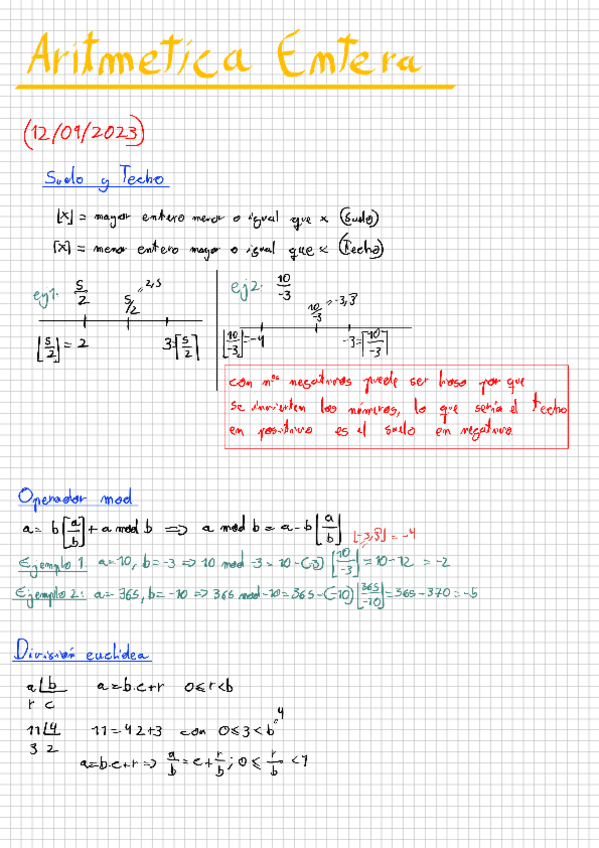 Aritmetica Entera
(12/09/2023)
Suelo y Techo
⌊x⌋ = mayor entero menor o igual que x (Suelo)
⌈x⌉ = menor entero mayor o igual que x (Techo)
ej1. 5/2 5/2 = 2,5
⌊5/2⌋ = 2 3 = ⌈5/2⌉
ej2. 10/-3 10/-3 = -3,3
⌊10/-3⌋ = -4 -3 = ⌈10/-3⌉
con nos negativos puede ser lioso por que
se invierten los números, lo que sería el techo
en positivo es el suelo en negativo.
Operador mod
a = b⌊a/b⌋ + a mod b ⟹ a mod b = a - b⌊a/b⌋ ⌊-3,3⌋ = -4
Ejemplo 1: a=10, b=-3 ⟹ 10 mod -3 = 10 - (-3)⌊10/-3⌋ = 10-12 = -2
Ejemplo 2: a=365, b=-10 ⟹ 365 mod -10 = 365 - (-10)⌊365/-10⌋ = 365-370 = -5
División euclidea
a|b a = b·c+r 0≤r<b
r c
11|4 11 = 4·2+3 con 0≤3<b=4
3 2
a=b·c+r ⟹ a/b = c + r/b ; 0 ≤ r/b < 1